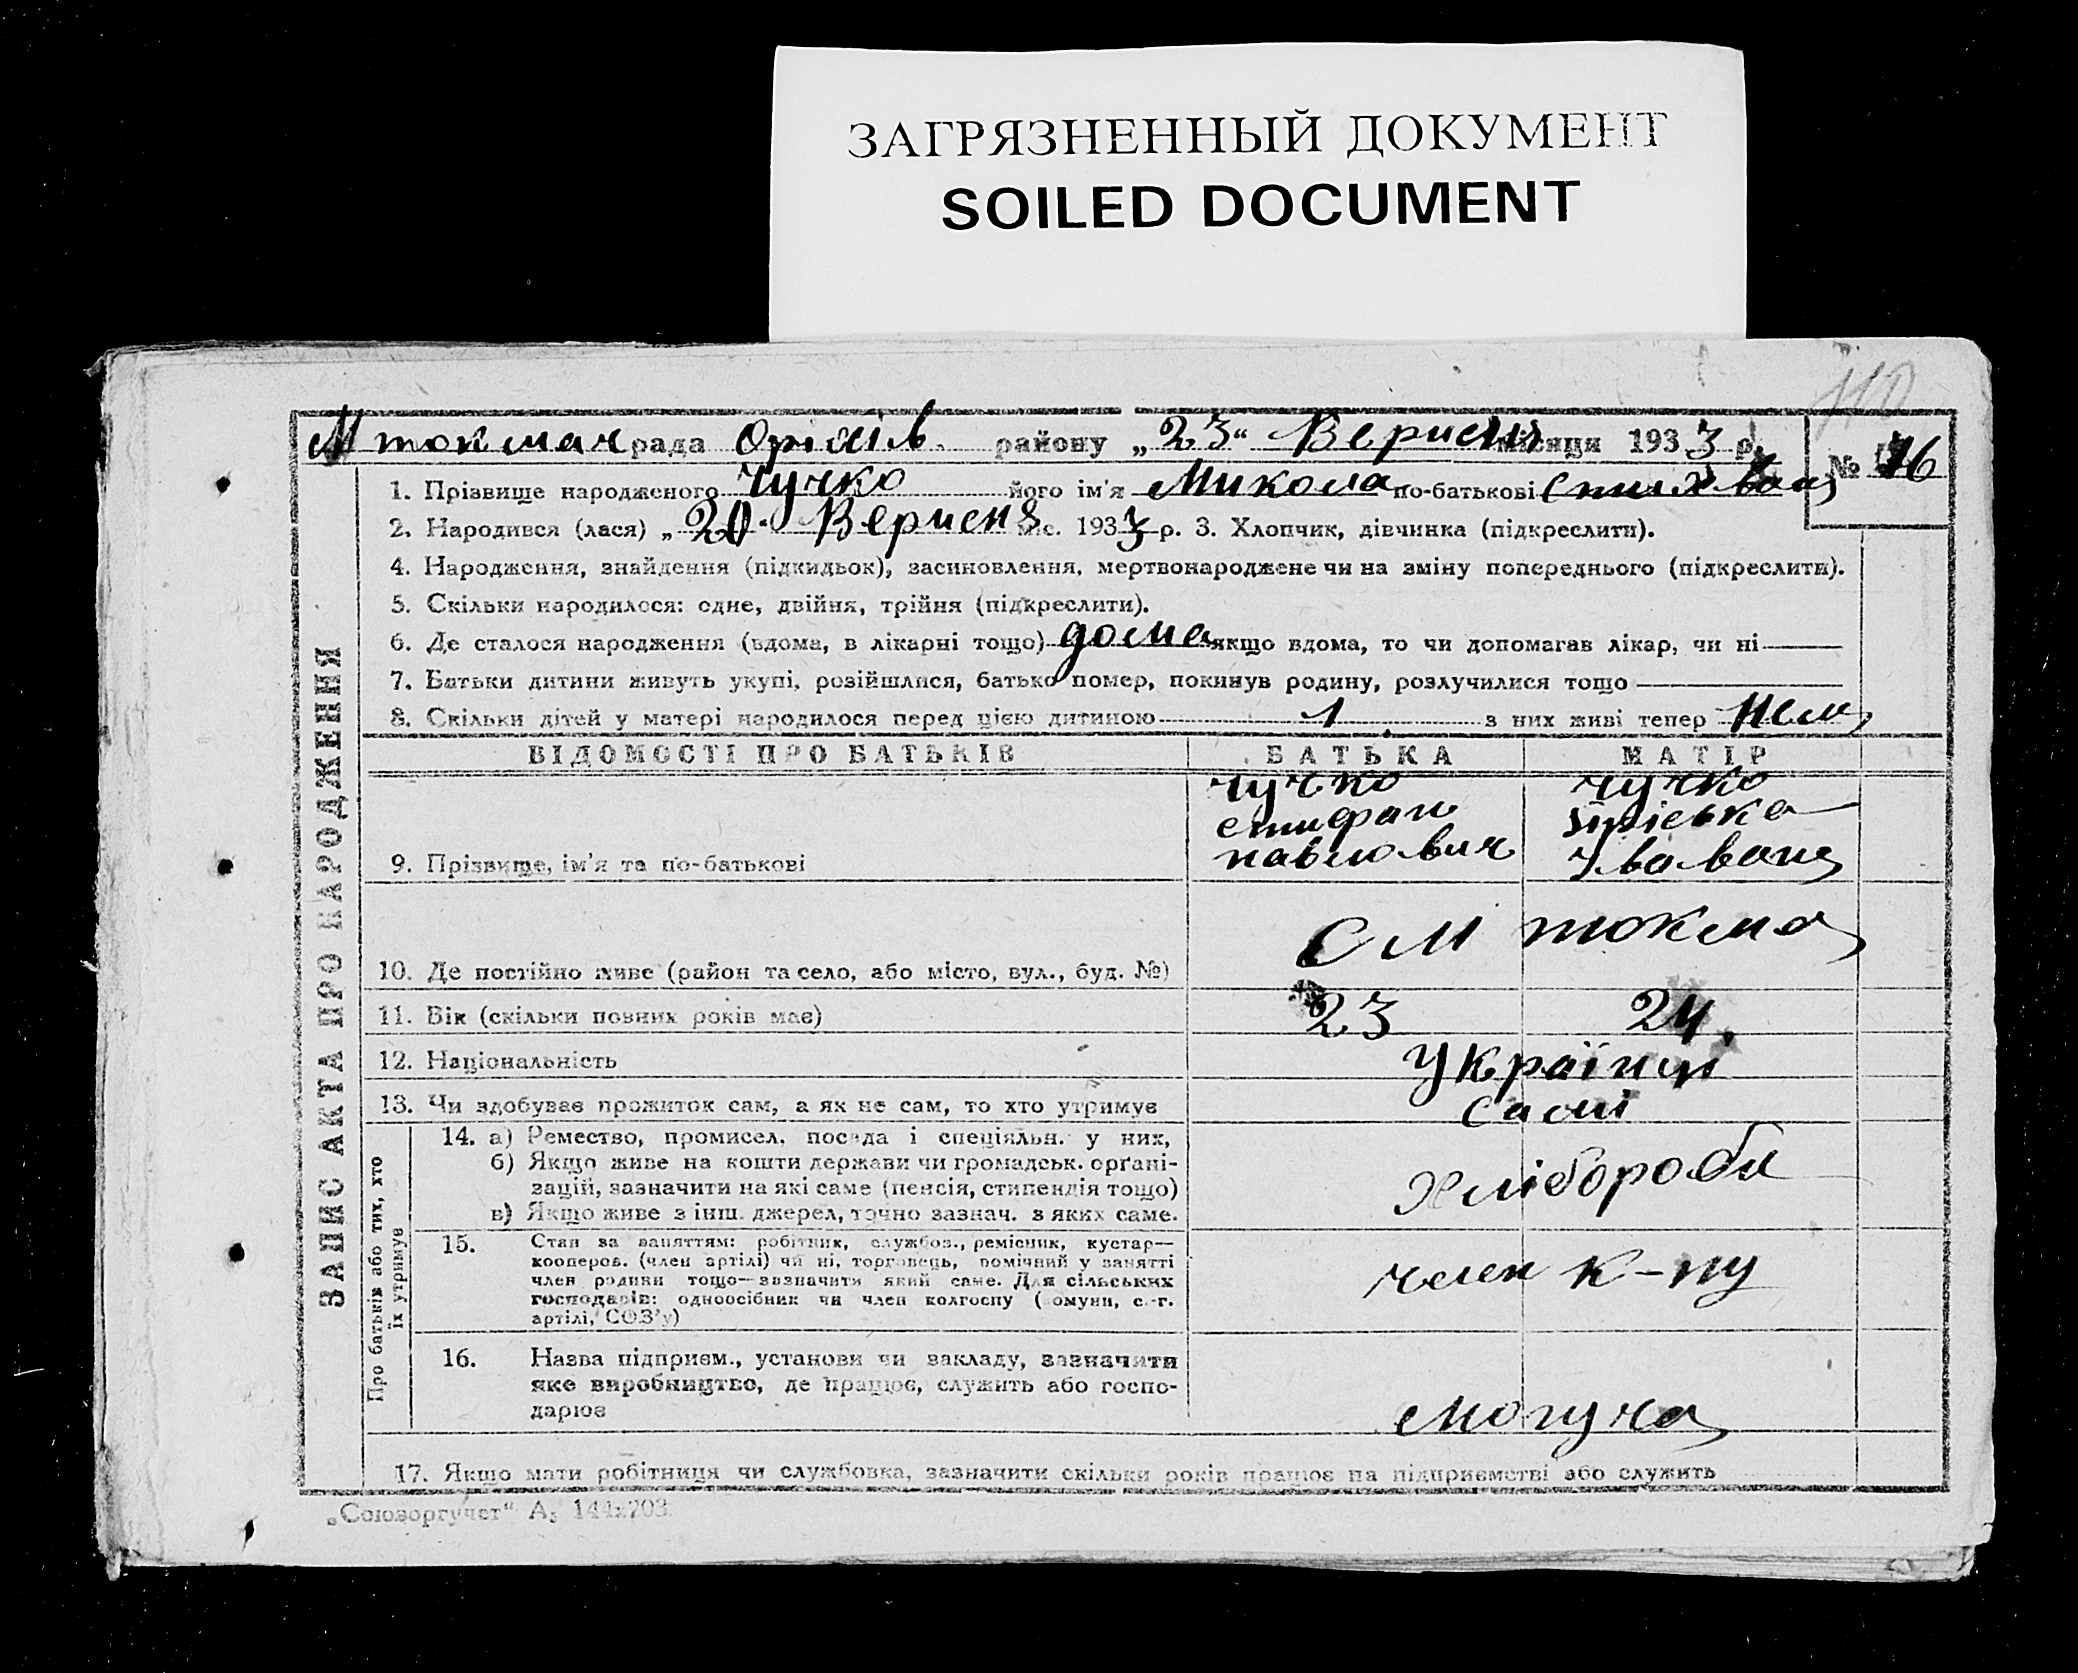 ЗАГРЯЗНЕННЫЙ ДОКУМЕНТ
SOILED DOCUMENT
110
М токмач рада Оріхів району „23" Верисня місяця 1933 р.
№ 16
1. Прізвище народженого Чучко його ім'я Микола по-батькові
2. Народився (лася) „20" Верисня міс. 1933 р. 3. Хлопчик, дівчинка (підкреслити).
4. Народження, знайдення (підкидьок), засиновлення, мертвонароджене чи на зміну попереднього (підкреслити).
5. Скільки народилося: одне, двійня, трійня (підкреслити).
6. Де сталося народження (вдома, в лікарні тощо) дома якщо вдома, то чи допомагав лікар, чи ні
7. Батьки дитини живуть укупі, розійшлися, батько помер, покинув родину, розлучилися тощо
8. Скільки дітей у матері народилося перед цією дитиною 1 з них живі тепер Нема
ЗАПИС АКТА ПРО НАРОДЖЕННЯ
ВІДОМОСТІ ПРО БАТЬКІВ БАТЬКА МАТІР
9. Прізвище, ім'я та по-батькові
Чучко
епифан
павлович
Чучко
10. Де постійно живе (район та село, або місто, вул., буд. №) с М токма
11. Вік (скільки повних років має) 23 24
12. Національність Українці
13. Чи здобуває прожиток сам, а як не сам, то хто утримує самі
Про батьків або тих, хто
їх утримує
14. а) Ремество, промисел, посада і спеціяльн. у них,
б) Якщо живе на кошти держави чи громадськ. орґані-
зацій, зазначити на які саме (пенсія, стипендія тощо)
в) Якщо живе з інш. джерел, точно зазнач. з яких саме.
Хлібороби
15. Стан за заняттям: робітник, службов., ремісник, кустар—
кооперов. (член артілі) чи ні, торговець, помічний у занятті
член родини тощо—зазначити який саме. Для сільських
господарів: одноосібник чи член колгоспу (комуни, с.-г.
артілі, СОЗ'у)
член к-пу
16. Назва підприєм., установи чи закладу, зазначити
яке виробництво, де працює, служить або госпо-
дарює
могуча
17. Якщо мати робітниця чи службовка, зазначити скільки років працює на підприємстві або служить
„Союзоргучет" А5 144х203